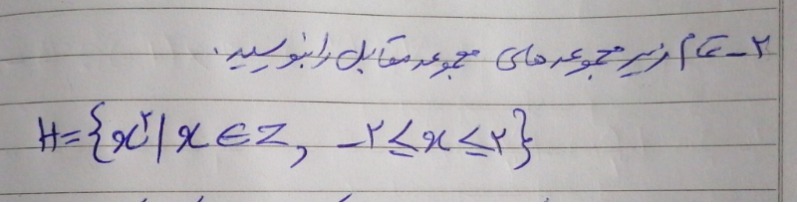 ۲- تمام زیر مجموعه های مجموعه مقابل را بنویسید.
H={x²|x∈Z, -۲≤x≤۲}